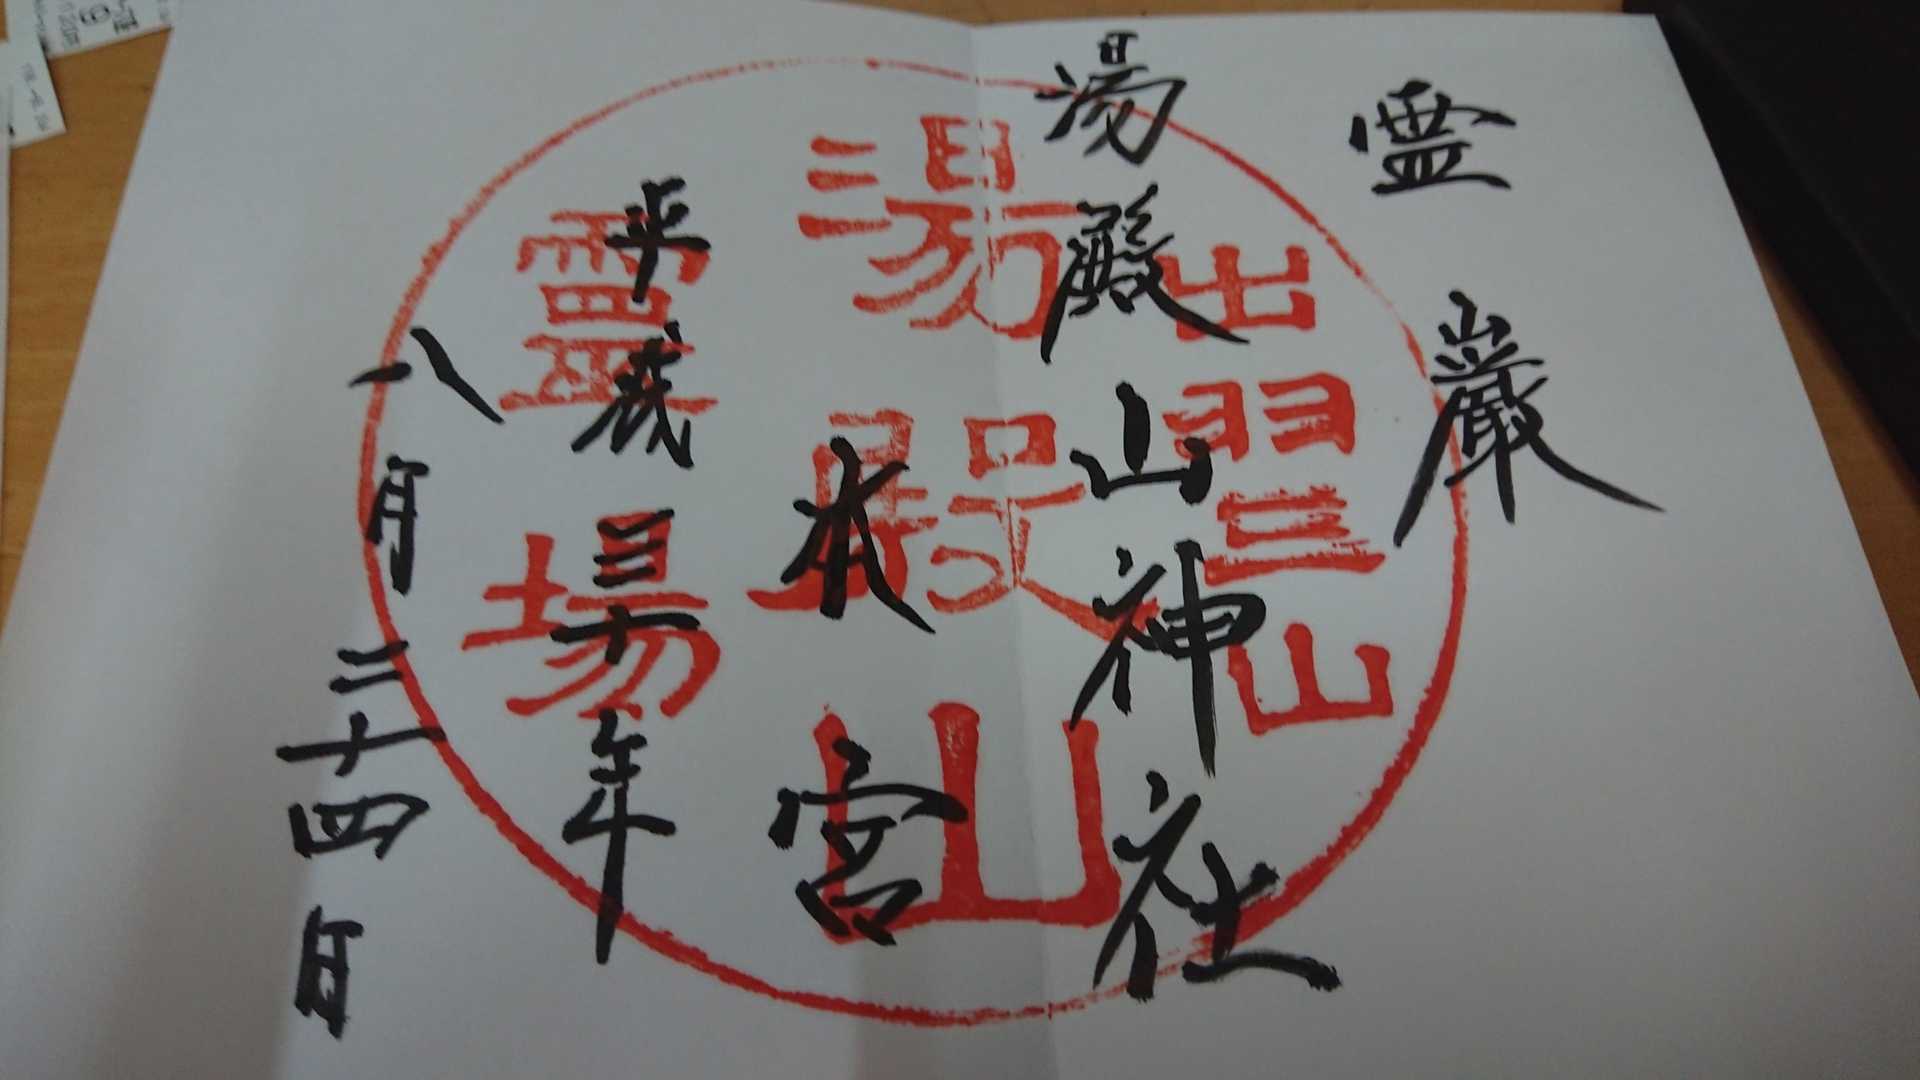 霊巌
湯殿山神社
本宮
平成三十年
八月二十四日
出羽三山
湯殿山
靈場